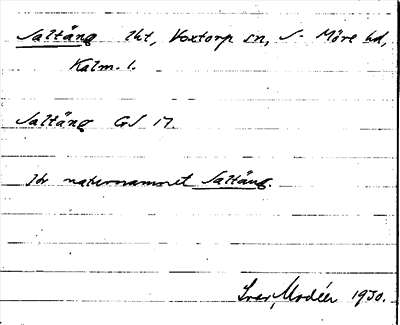 Saltäng lht, Voxtorp sn, S. Möre hd,
Kalm. l.
Saltäng GS 17.
Är naturnamnet Saltäng.
Ivar Modéer 1930.